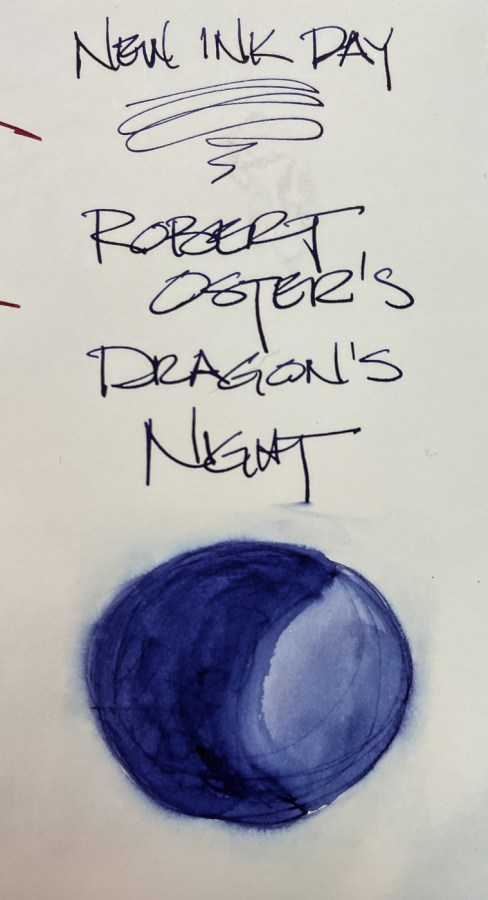 NEW INK DAY
ROBERT
OSTER'S
DRAGON'S
NIGHT